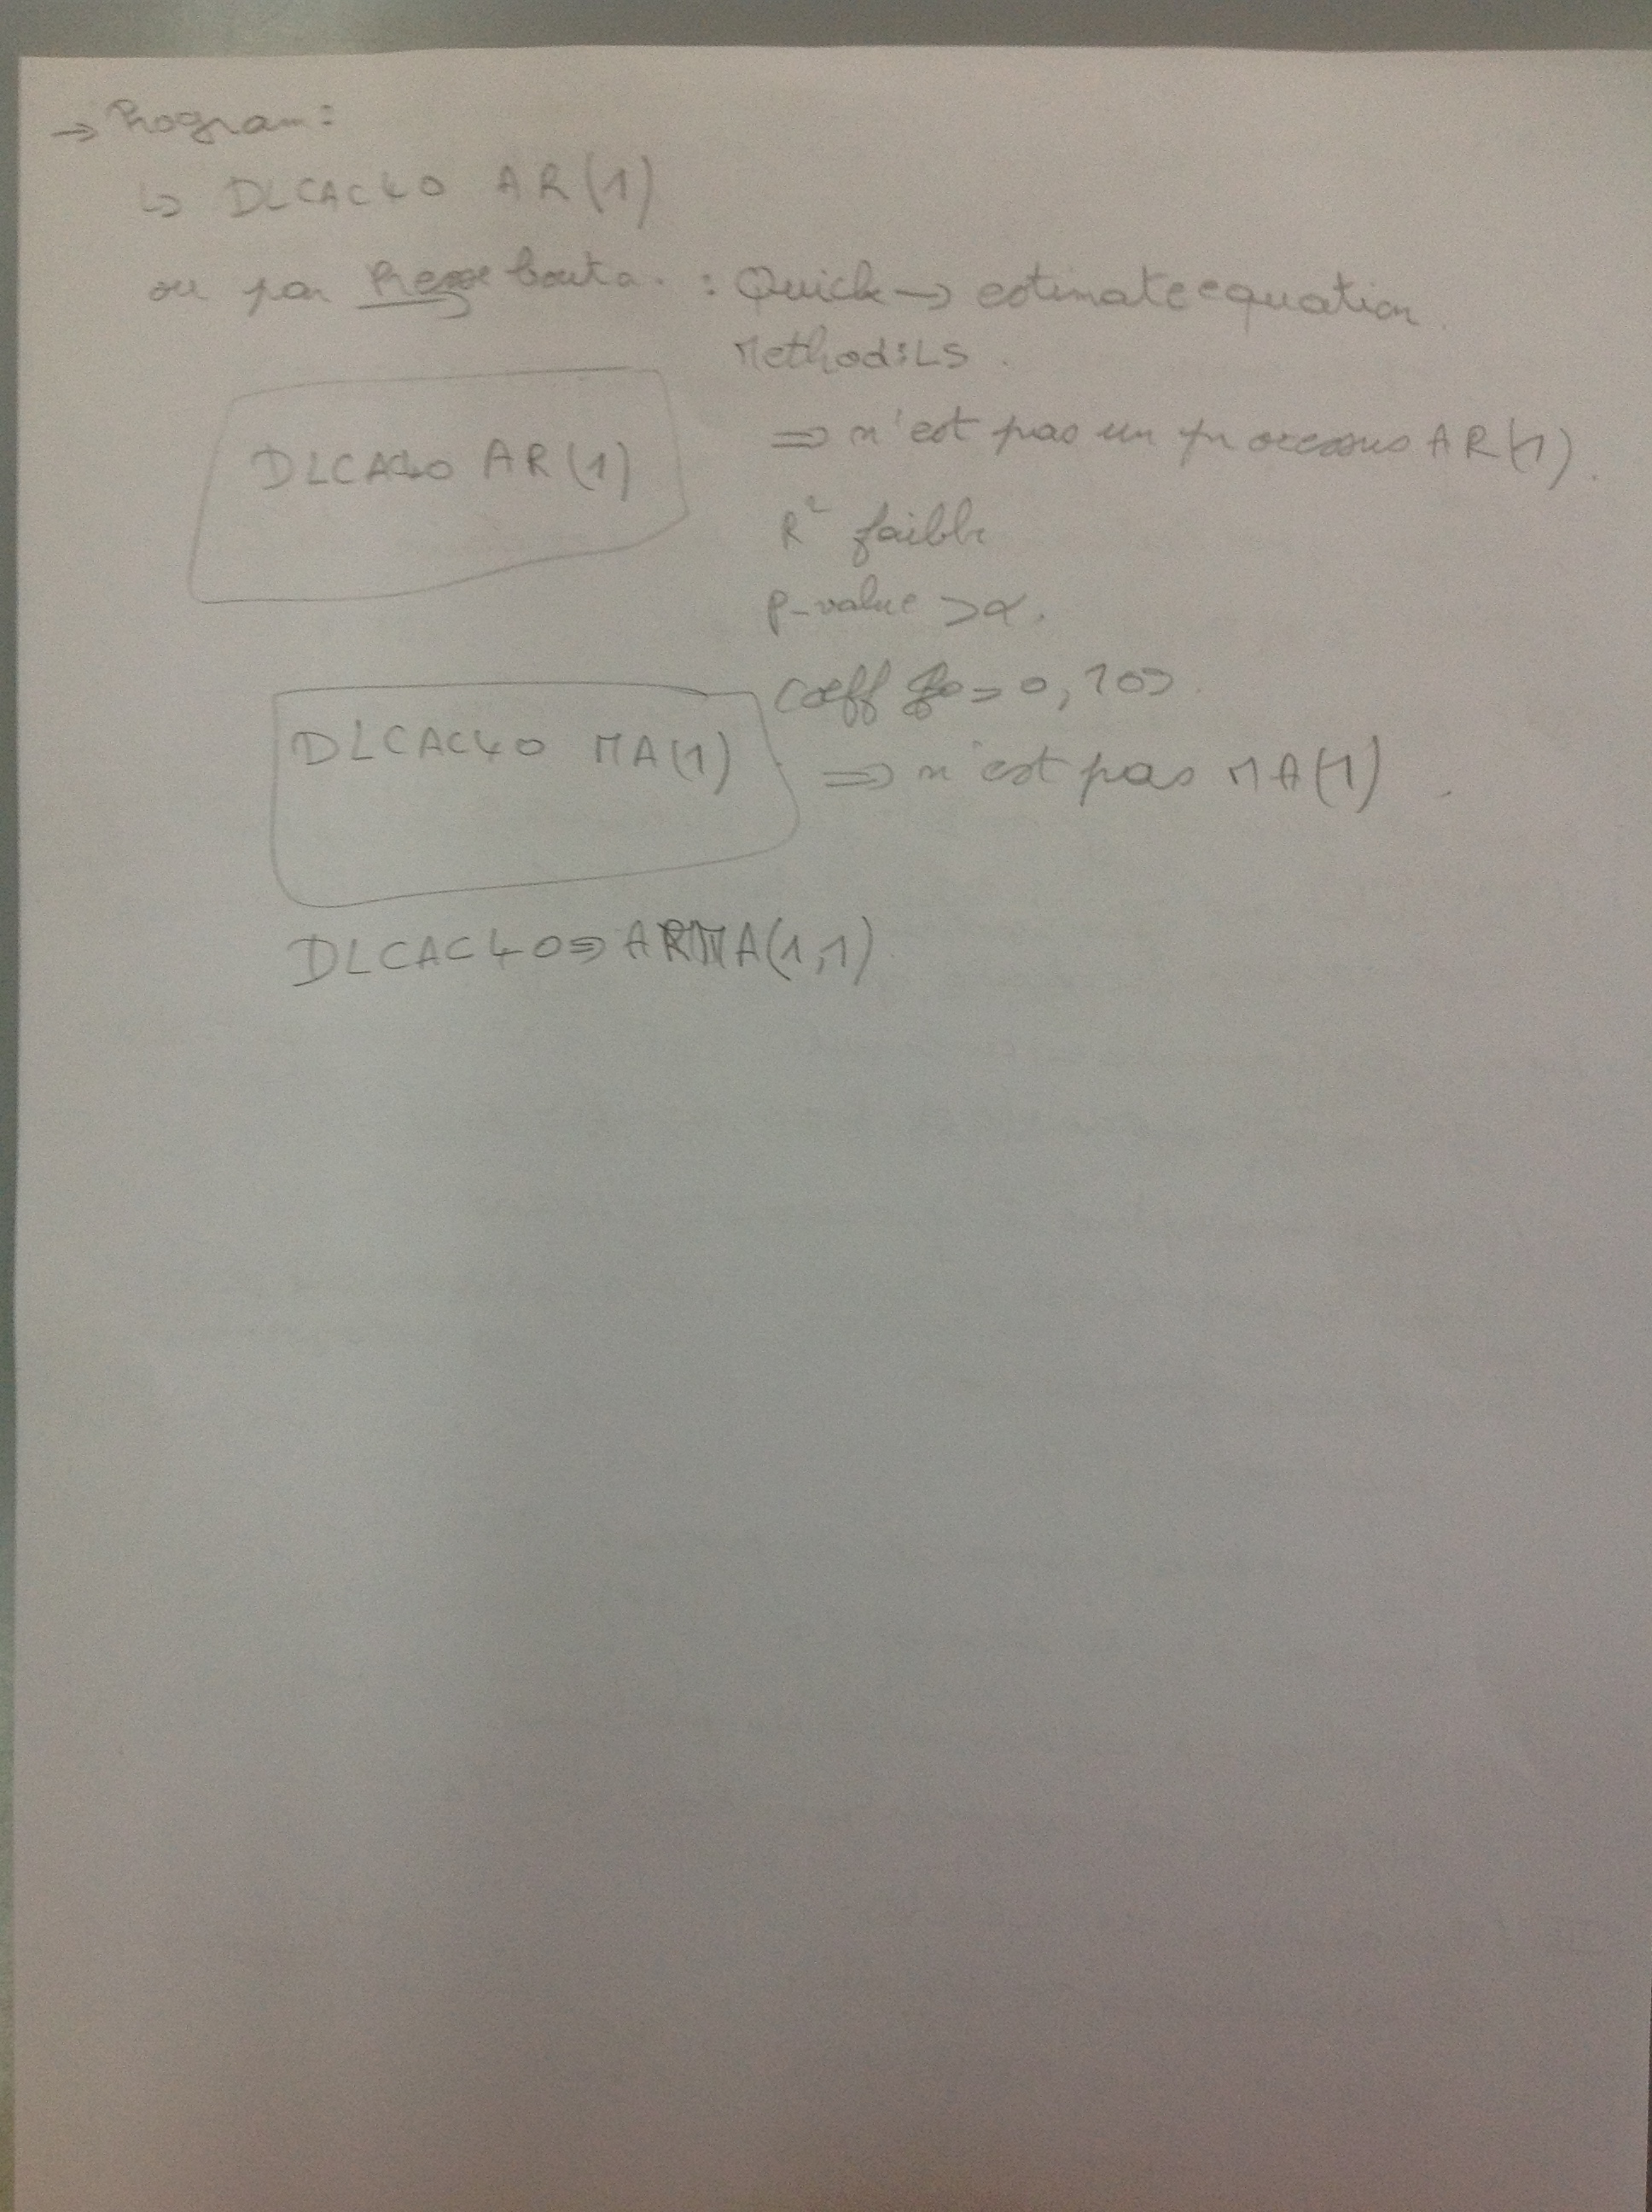 → Program:
↳ DLCAC40 AR(1)
ou par Presse bouto. : Quick → estimate equation.
Method: LS.
DLCA40 AR(1)
⇒ n'est pas un processus AR(1).
R² faible
p-value > α.
DLCAC40 MA(1)
coeff = 0,
⇒ n'est pas MA(1).
DLCAC40 ⇒ ARMA(1,1)